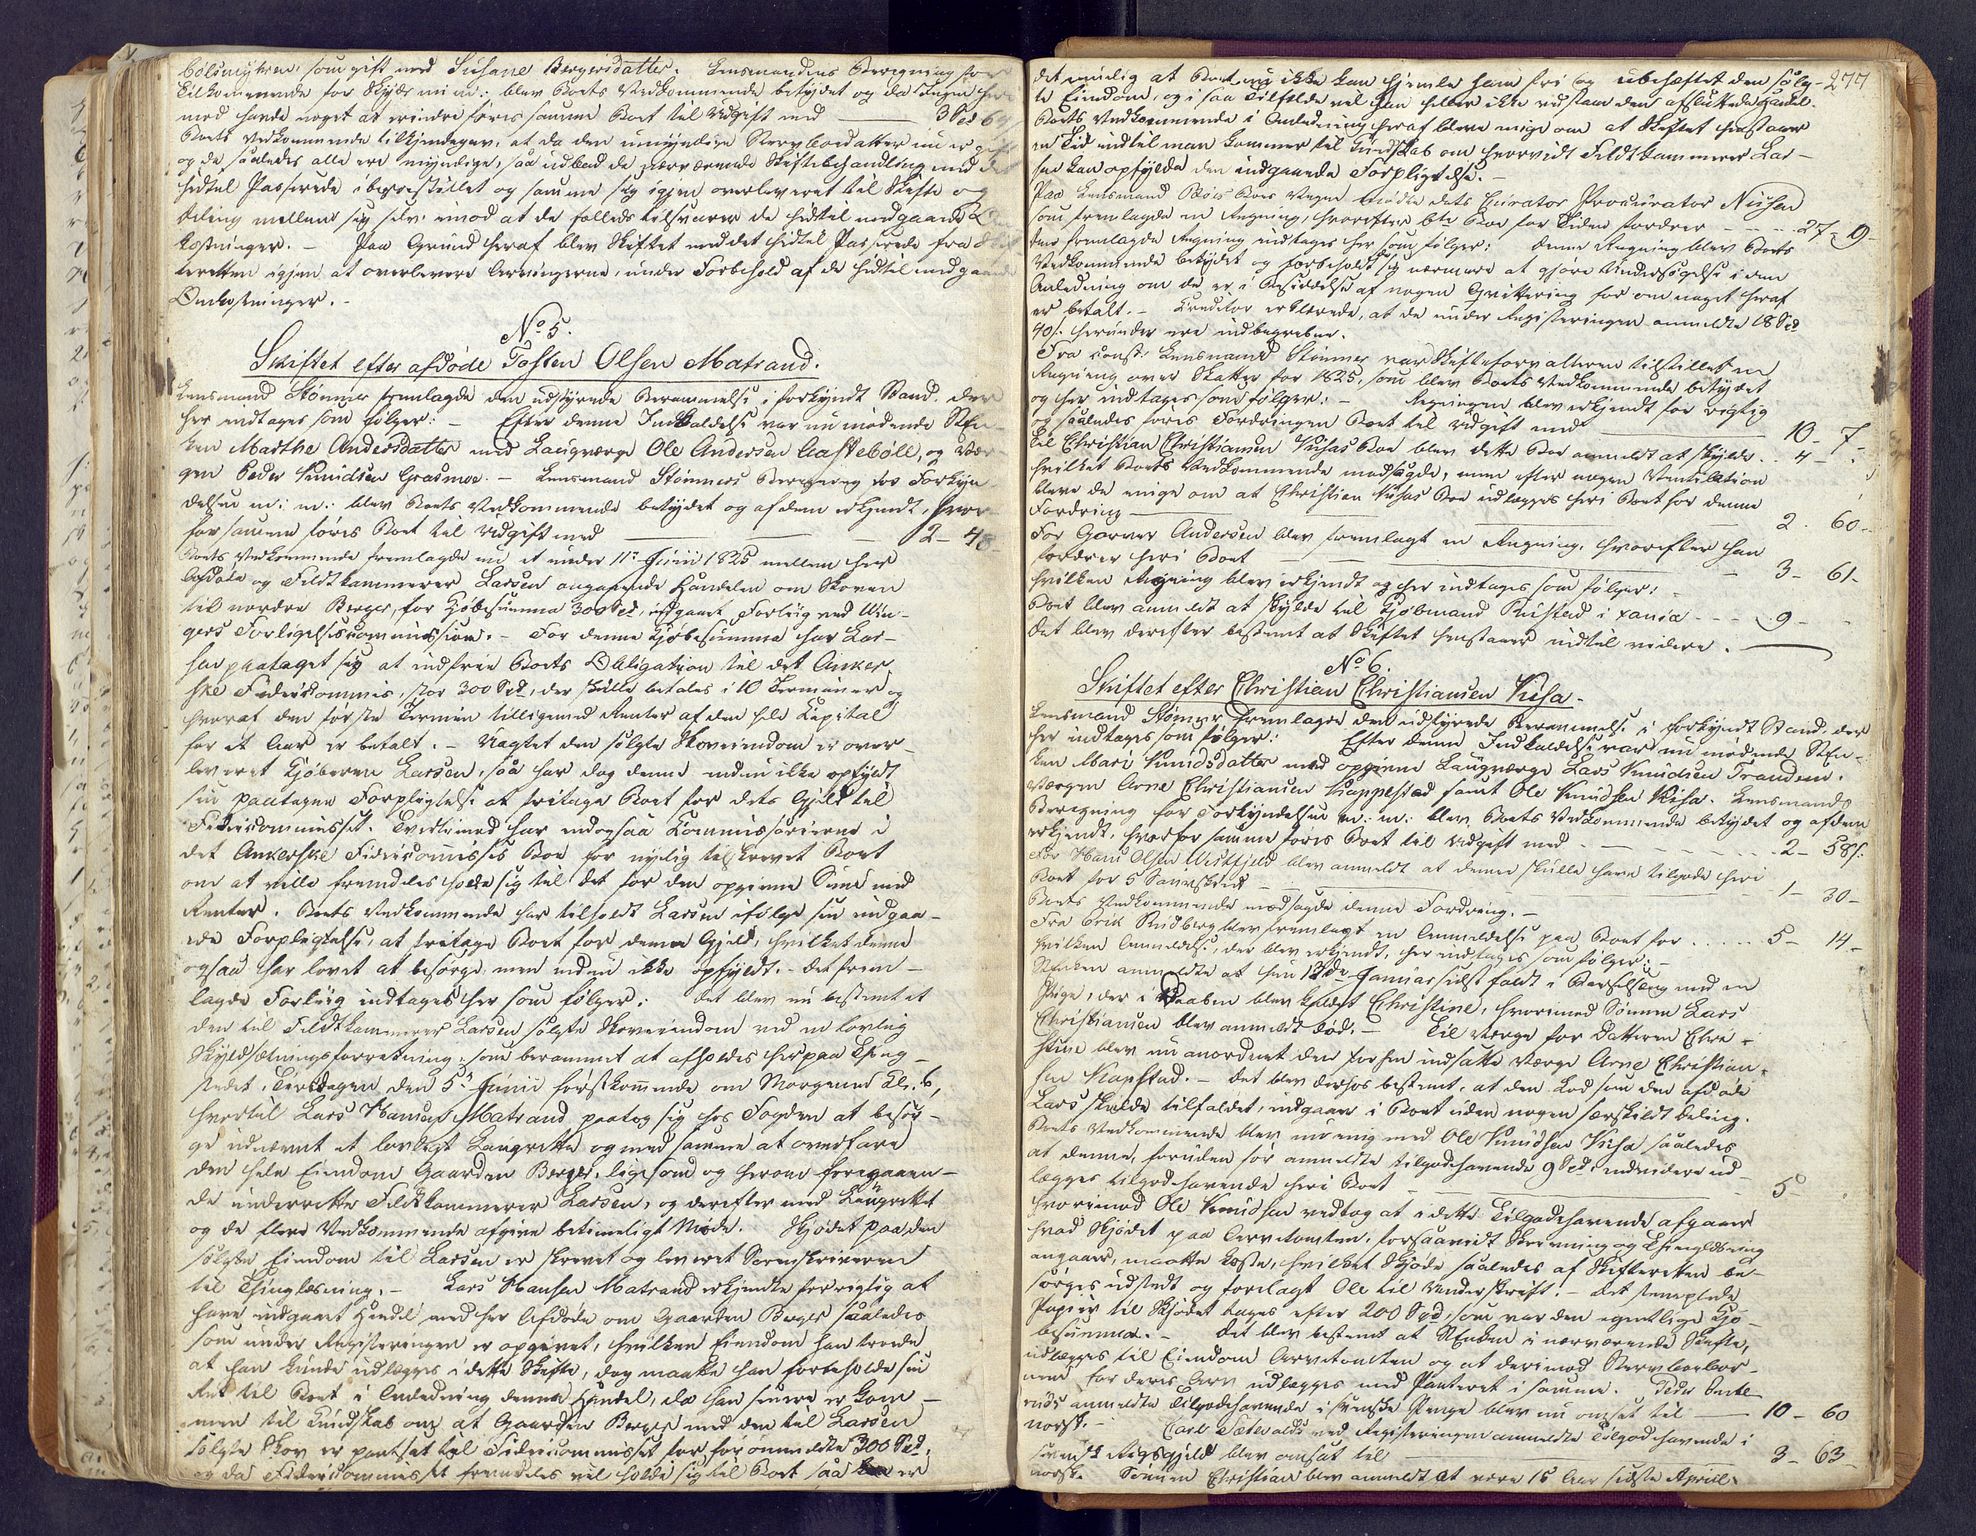 bølsmyhren, som gift med Susane Bergersdatter. Lensmandens Beregning for
Tilkommende for Skyds m: m: blev Boets Vedkommende betydet og da Ingen her
med havde noget at erindre føres samme Boet til Udgift med 3 Spd 64
Boets Vedkommende tilkjendegav, at da den umyndige Stervboedatter nu er gift
og de saaledes alle ere myndige, saa udbad de nærværende Skiftebehandling med det
hidtil Passerede iberoestillet og samme sig igjen overleveret til Skifte og
Deling mellem sig selv imod at de fælleds tilsvarer de hidtil medgaaede Om-
kostninger. - Paa Grund heraf blev Skiftet med det hidtil Passerede fra Skif-
teretten igjen at overlevere Arvingerne, under Forbehold af de hidtil medgaaede
Omkostninger. -
No 5.
Skiftet efter afdøde Tosten Olsen Matrand.
Lensmand Stømner fremlagde den udstyrede Berammelse i forkyndt Stand, der
her indtages som følger: - Efter denne Indkaldelse var nu mødende En-
ken Marthe Andersdatter med Laugværge Ole Andersen Aastebøll, og Vær-
gen Peder Knudsen Grasmoe. - Lensmand Stømners Beregning for Forkyn-
delsen m: m: blev Boets Vedkommende betydet og af dem erkjendt, hvor-
for samme føres Boet til Udgift med 2 - 48
Boets Vedkommende fremlagde nu et under 11te Junii 1825 mellem her
Afdøde og Feldtkammerer Larsen angaaende Handelen om Skoven
til nordre Berger, for Kjøbesumma 300 Spd, indgaaet Forliig ved Vin-
gers Forligelsescommission. - For denne Kjøbesumma har Lar-
sen paataget sig at indfrie Boets Obligation til det Anker-
ske Fideicommis, stor 300 Spd, der skulle betales i 10 Terminer og
hvoraf den første Termin tilligemed Renter af den hele Kapital
for et Aar er betalt. - Uagtet den solgte Skoveiendom er over-
leveret Kjøberen Larsen, saa har dog denne endnu ikke opfyldt
sin paatagne Forpligtelse at fritage Boet for dets Gjeld til
Fideicommisset. Tvertimod har endogsaa Commissarierne i
det Ankerske Fideicommisses Boe for nylig tilskrevet Boet
om at ville fremdeles holde sig til det for den opgivne Sum med
Renter. Boets Vedkommende har tilholdt Larsen ifølge sin indgaa-
ede Forpligtelse, at fritage Boet for denne Gjeld, hvilket denne
ogsaa har lovet at besørge, men endnu ikke opfyldt. - Det frem-
lagde Forliig indtages her som følger: Det blev nu bestemt at
den til Feldtkammerer Larsen solgte Skoveiendom ved en lovlig
Skyldsætningsforretning, som berammet at afholdes her paa Thing-
stedet, Tirsdagen den 5te Junii førstkommende om Morgenen Kl. 6,
hvortil Lars Hansen Matrand paatog sig hos Fogden at besør-
ge udnævnt et lovligt Laugrette og med samme at overfare
den hele Eiendom Gaarden Berger, ligesom og herom foregaaen-
de underrette Feldtkammerer Larsen, og derefter med Laugrettet
og de flere Vedkommende afgive betimeligt Møde. Skjødet paa den
solgte Eiendom til Larsen er skrevet og leveret Sorenskriveren
til Thinglæsning. - Lars Hansen Matrand erkjendte for rigtig at
have indgaaet Handel med her Afdøde om Gaarden Berger saaledes
som under Registeringen er opgivet, hvilken Eiendom han troede
at han kunde udlægges i dette Skifte, dog maatte han forbeholde sin
Ret til Boet i Anledning denne Handel, da han senere er kom-
men til Kundskab om, at Gaarden Berger med den til Larsen
solgte Skov er pantsat til Fideicommisset for før anmeldte 300 Spd,
og da Fideicommisset fremdeles vil holde sig til Boet saa er
277
det muelig at Boet nu ikke kan hjemle ham fri og ubehæftet den solg-
te Eiendom, og i saa Tilfælde vil han heller ikke vedstaae den afsluttede Handel.
Boets Vedkommende i Anledning heraf bleve enige om at Skiftet henstaaer
en Tid indtil man kommer til Kundskab om hvorvidt Feldtkammerer Lar-
sen kan opfylde den indgaaede Forpligtelse. -
Paa Lensmand Boes Vegne mødte dets Curator Procurator Nilsen
som fremlagde en Regning, hvorefter bte Boe for Tiden fordrer 27 - 9 -
den fremlagde Regning indtages her som følger: denne Regning blev Boets
Vedkommende betydet og forbeholdt sig nærmere at gjøre Undersøgelse i den
Anledning om de er i Besiddelse af nogen Qvittering for om noget heraf
er betalt. - Creditor erklærede, at de under Registeringen anmeldte 18 Spd
40 s. herunder ere indbegrebne.
Fra const. Lensmand Stømner var Skifteforvalteren tilstillet en
Regning over Skatter for 1825, som blev Boets Vedkommende betydet
og her indtages som følger: - Regningen blev erkjendt for rigtig
og saaledes føres Fordringen Boet til Udgift med 10 - 7 -
Til Christian Christiansen Viisas Boe blev dette Boe anmeldt at skylde 4
hvilket Boets Vedkommende modsagde, men efter nogen Ventilation
bleve de enige om at Christian Viisas Boe udlægges heri Boet for denne
Fordring 2. 60 -
For Garver Andersen blev fremlagt en Regning, hvorefter han
fordrer heri Boet 3 - 61 -
hvilken Regning blev erkjendt og her indtages som følger:
Boet blev anmeldt at skylde til Kjøbmand Rustad i xania 9 -
Det blev derefter bestemt at Skiftet henstaaer indtil videre.
No 6.
Skiftet efter Christian Christiansen Viisa.
Lensmand Stømner fremlagde den udstyrede Berammelse i forkyndt Stand, der
her indtages som følger: Efter denne Indkaldelse var nu mødende En-
ken Mari Knudsdatter med opgivne Laugværge Lars Knudsen Tranden.
Værgen Arne Christiansen Kappestad samt Ole Knudsen Viisa. Lensmands
Beregning for Forkyndelsen m: m: blev Boets Vedkommende betydet og af dem
erkjendt, hvorfor samme føres Boet til Udgift med 2 - 58 s.
For Hans Olsen Westfjeld blev anmeldt at denne skulle have tilgode heri
Boet for 5 1 - 30 -
Boets Vedkommende modsagde denne Fordring. -
Fra Erik Rudberg blev fremlagt en Anmeldelse paa Boet for 5 - 14 -
hvilken Anmeldelse, der blev erkjendt, her indtages som følger: -
Enken anmeldte at hun 12de Januar sidst faldt i Barselseng med en
Pige, der i Daaben blev kaldet Christine, hvorimod Sønnen Lars
Christiansen blev anmeldt død. - Til Værge for Datteren Chri-
stine blev nu anordnet den forhen indsatte Værge Arne Christian-
sen Kapstad. - Det blev derhos bestemt, at den Lod som den afdøde
Lars skulde tilfaldet, indgaaer i Boet uden nogen særskildt Deling.
Boets Vedkommende blev nu enig med Ole Knudsen Viisa saaledes
at denne, foruden før anmeldte tilgodehavende 9 Spd, endvidere ud-
lægges tilgodehavende heri Boet 5 -
hvorimod Ole Knudsen vedtog at i dette Tilgodehavende afgaaer
hvad Skjødet paa Arvetomten, forsaavidt Skrivning og Thinglæsning
angaaer, maatte koste, hvilket Skjøde saaledes af Skifteretten be-
sørges udstedt og forelagt Ole til Underskrift. - Det stemplede
Papiir til Skjødet tages efter 200 Spd, som var den egentlige Kjø-
besumma. - Det blev bestemt at Enken i nærværende Skifte,
udlægges til Eiendom Arvetomten og at derimod Stervboebør-
nene for deres Arv udlægges med Panteret i samme. Peder
ruds anmeldte Tilgodehavende i svenske Penge blev nu omsat til 10 - 60
norsk. - Carl Sætervolds ved Registeringen anmeldte Tilgodehavende i
svensk Rigsgjeld blev omsat til 3 - 63 -
norsk. Sønnen Christian blev anmeldt at være 15 Aar sidste April.